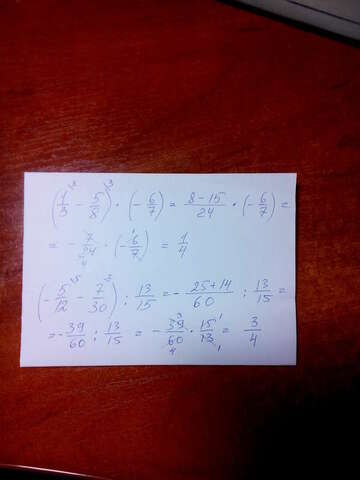 (1/3 \8 - 5/8 \3) · (- 6/7) = 8-15/24 · (- 6/7) =
= - 7/24 4 · (- 6 1/7) = 1/4
(- 5/12 \5 - 7/30) : 13/15 = - 25+14/60 : 13/15 =
= - 39/60 : 13/15 = - 39 3/60 4 · 15 1/13 1 = 3/4